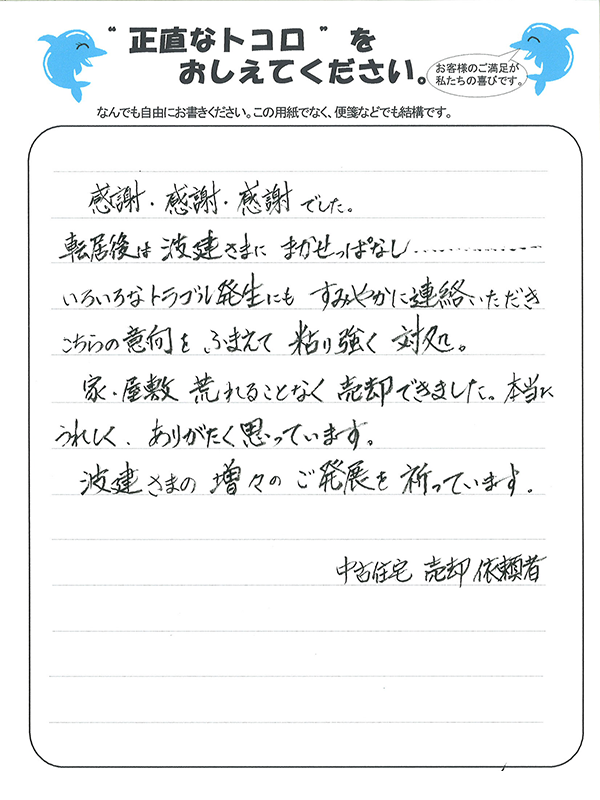 “正直なトコロ”を
おしえてください。
お客様のご満足が
私たちの喜びです。
なんでも自由にお書きください。この用紙でなく、便箋などでも結構です。
感謝・感謝・感謝でした。
転居後は波建さまに まかせっぱなし………………
いろいろなトラブル発生にも すみやかに連絡いただき
こちらの意向を ふまえて 粘り強く 対処。
家・屋敷 荒れることなく 売却できました。本当に
うれしく、ありがたく思っています。
波建さまの 増々の ご発展を 祈っています。
中古住宅 売却 依頼者